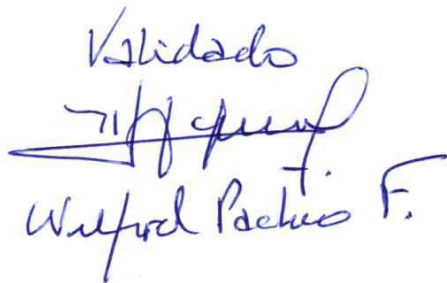 Validado
Wilfred Pacheco F.